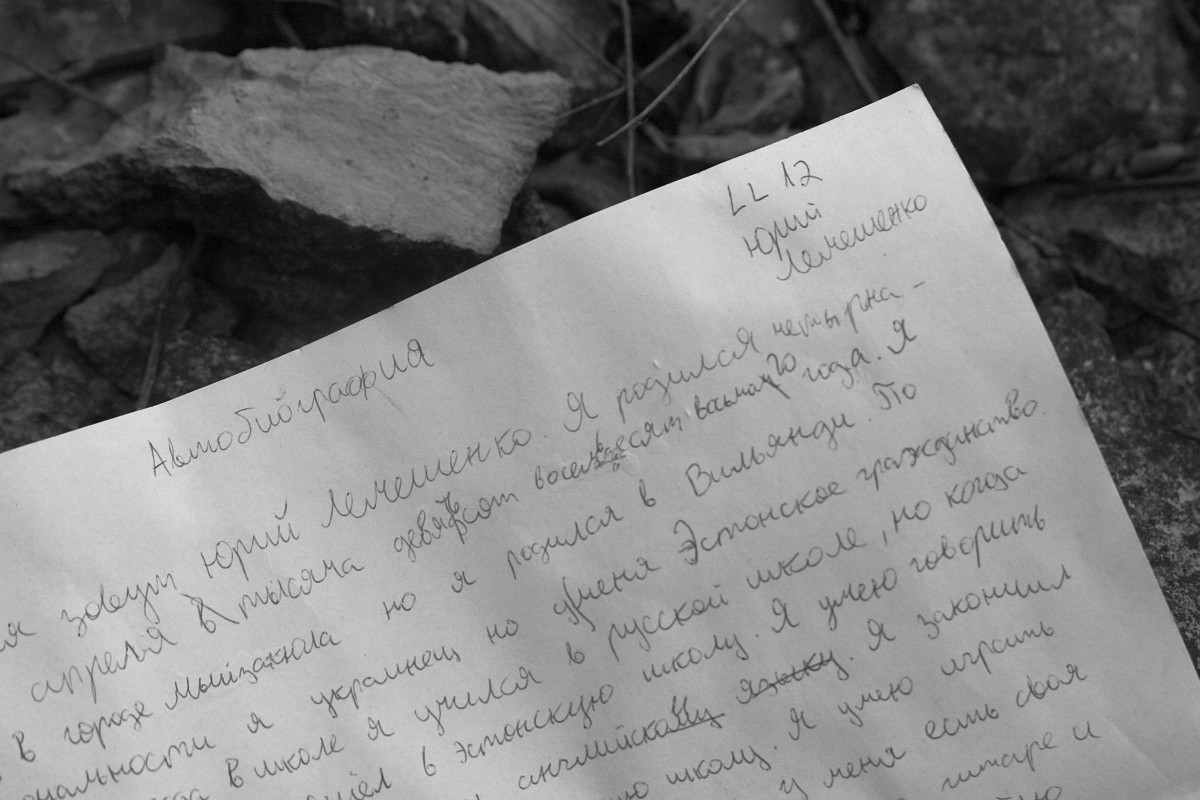 LL 12
Юрий
Лемешенко
Автобиография
ня зовут Юрий Лемешенко. Я родился четырна-
апреля в тысяча девятьсот восемьдесят восьмого года. Я
в городе Мыйзакюла но я родился в Вильянди. По
ональности я украинец но у меня Эстонское гражданство.
в школе я учился в русской школе, но когда
шёл в Эстонскую школу. Я умею говорить
английскому языку. Я закончил
ую школу. Я умею играть
у меня есть своя
гитаре и